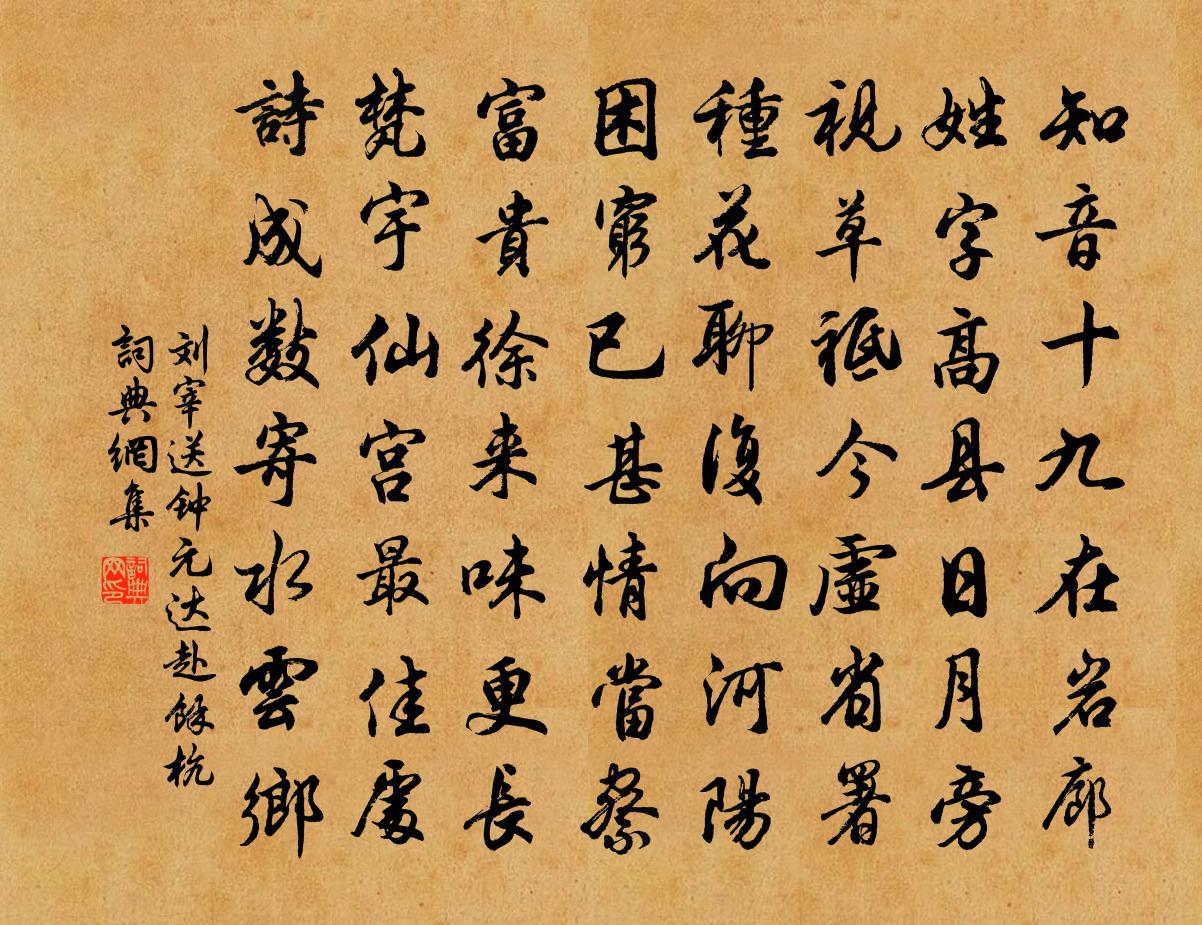 知音十九在岩廊
姓字高县日月旁
視草祗今虛省署
種花聊復向河陽
困窮已甚情當察
富貴徐来味更長
梵宇仙宫最佳處
詩成數寄水雲鄉
刘宰送钟元达赴馀杭
詞典網集
詞典网印